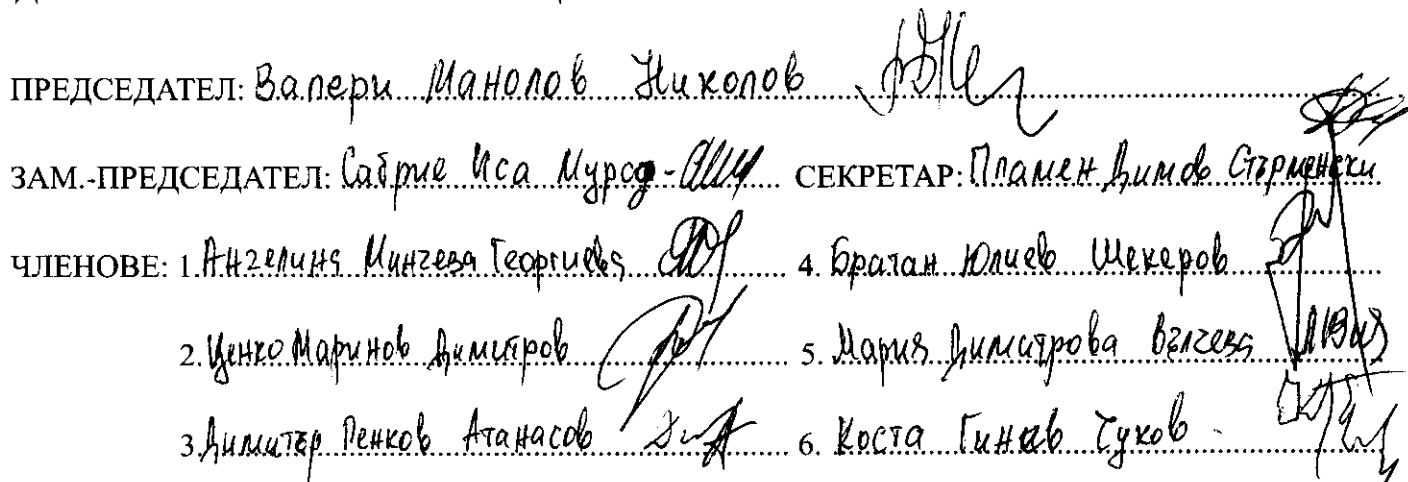 ПРЕДСЕДАТЕЛ: Валери Манолов Николов
ЗАМ.-ПРЕДСЕДАТЕЛ: Сабрие Иса Мурад- СЕКРЕТАР: Пламен Димов Стърменски
ЧЛЕНОВЕ: 1. Ангелина Минчева Георгиева 4. Братан Юлиев Шекеров
2. Ценко Маринов Димитров 5. Мария Димитрова Вълчева
3. Димитър Пенков Атанасов 6. Коста Гинев Чуков